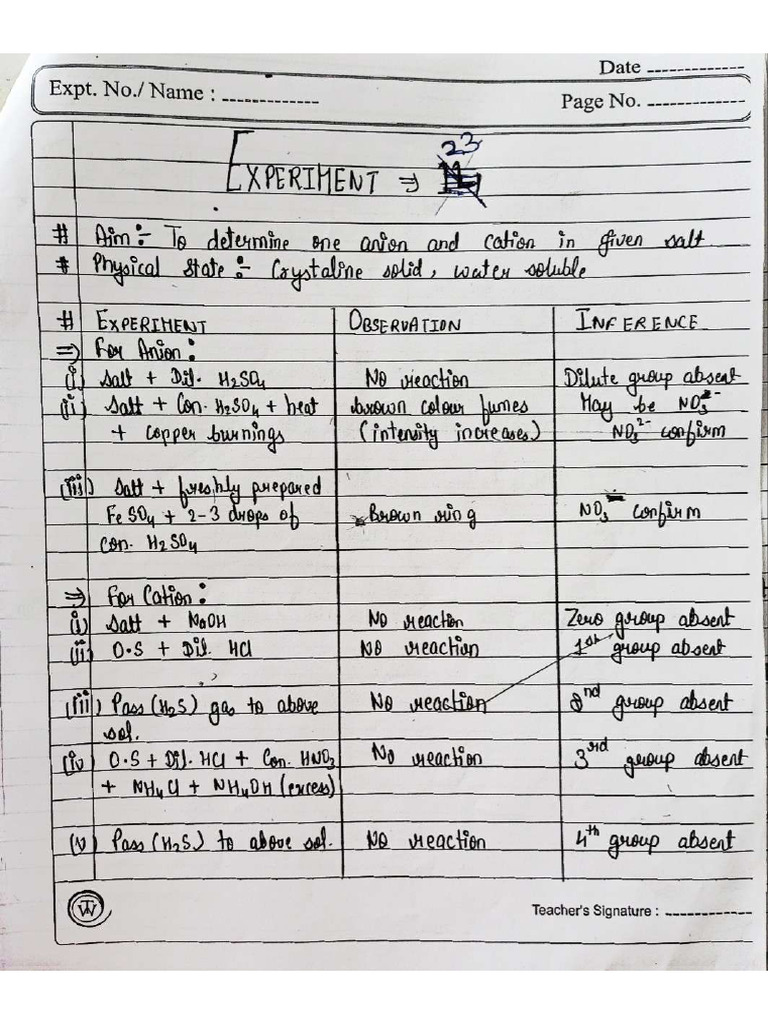 Date
Expt. No./ Name :
Page No.
EXPERIMENT ⇒ 23
# Aim:- To determine one anion and cation in given salt
# Physical state:- Crystaline solid, water soluble
# EXPERIMENT OBSERVATION INFERENCE
⇒ For Anion:
(i) Salt + Dil. H2SO4 No reaction Dilute group absent
(ii) Salt + Con. H2SO4 + heat brown colour fumes May be NO3-
+ copper burnings (intensity increases) NO3 2- confirm
(iii) Salt + freshly prepared
FeSO4 + 2-3 drops of Brown ring NO3 confirm
Con. H2SO4
⇒ For Cation:
(i) Salt + NaOH No reaction Zero group absent
(ii) O.S + Dil. HCl No reaction 1st group absent
(iii) Pass (H2S) gas to above No reaction nd group absent
sol.
(iv) O.S + Dil. HCl + Con. HNO3 No reaction 3rd group absent
+ NH4Cl + NH4OH (excess)
(v) Pass (H2S) to above sol. No reaction 4th group absent
Teacher's Signature :